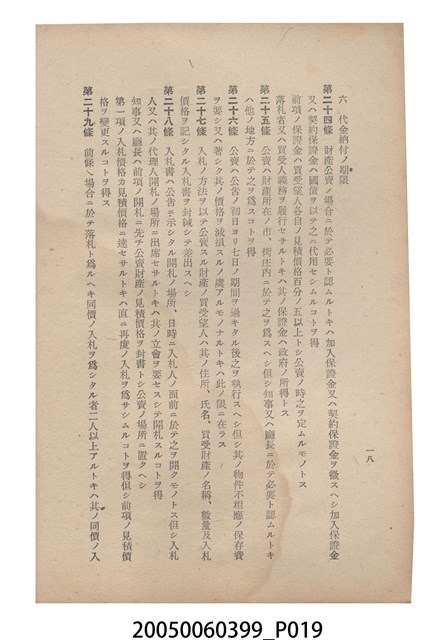 六 代金納付ノ期限
第二十四條 財產公賣ノ場合ニ於テ必要ト認ムルトキハ加入保證金又ハ契約保證金ヲ徵スヘシ加入保證金
又ハ契約保證金ハ國債ヲ以テ之ニ代用セシムルコトヲ得
前項ノ保證金ハ買受望人各自ノ見積價格百分ノ五以上トシ公賣ノ時之ヲ定ムルモノトス
落札者又ハ買受人義務ヲ履行セサルトキハ其ノ保證金ハ政府ノ所得トス
第二十五條 公賣ハ財產所在ノ市、街庄內ニ於テ之ヲ爲スヘシ但シ知事又ハ廳長ニ於テ必要ト認ムルトキ
ハ他ノ地方ニ於テ之ヲ爲スコトヲ得
第二十六條 公賣ハ公告ノ初日ヨリ七日ノ期間ヲ過キタル後之ヲ執行スヘシ但シ其ノ物件不相應ノ保存費
ヲ要シ又ハ著シク其ノ價格ヲ減損スルノ虞アルモノナルトキハ此ノ限ニ在ラス
第二十七條 入札ノ方法ヲ以テ公賣スル財產ノ買受望人ハ其ノ住所、氏名、買受財產ノ名稱、數量及入札
價格ヲ記シタル入札書ヲ封緘シテ差出スヘシ
第二十八條 入札書ハ公告ニ示シタル開札ノ場所、日時ニ入札人ノ面前ニ於テ之ヲ開クモノトス但シ入札
人又ハ其ノ代理人開札ノ場所ニ出席セサルトキハ其ノ立會ヲ要セスシテ開札スルコトヲ得
知事又ハ廳長ハ前項ノ開札ニ先チ公賣財產ノ見積價格ヲ封書トシ公賣ノ場所ニ置クヘシ
第一項ノ入札價格カ見積價格ニ達セサルトキハ直ニ再度ノ入札ヲ爲サシムルコトヲ得但シ前項ノ見積價
格ヲ變更スルコトヲ得ス
第二十九條 前條ノ場合ニ於テ落札ト爲ルヘキ同價ノ入札ヲ爲シタル者二人以上アルトキハ其ノ同價ノ入
一八
20050060399_P019